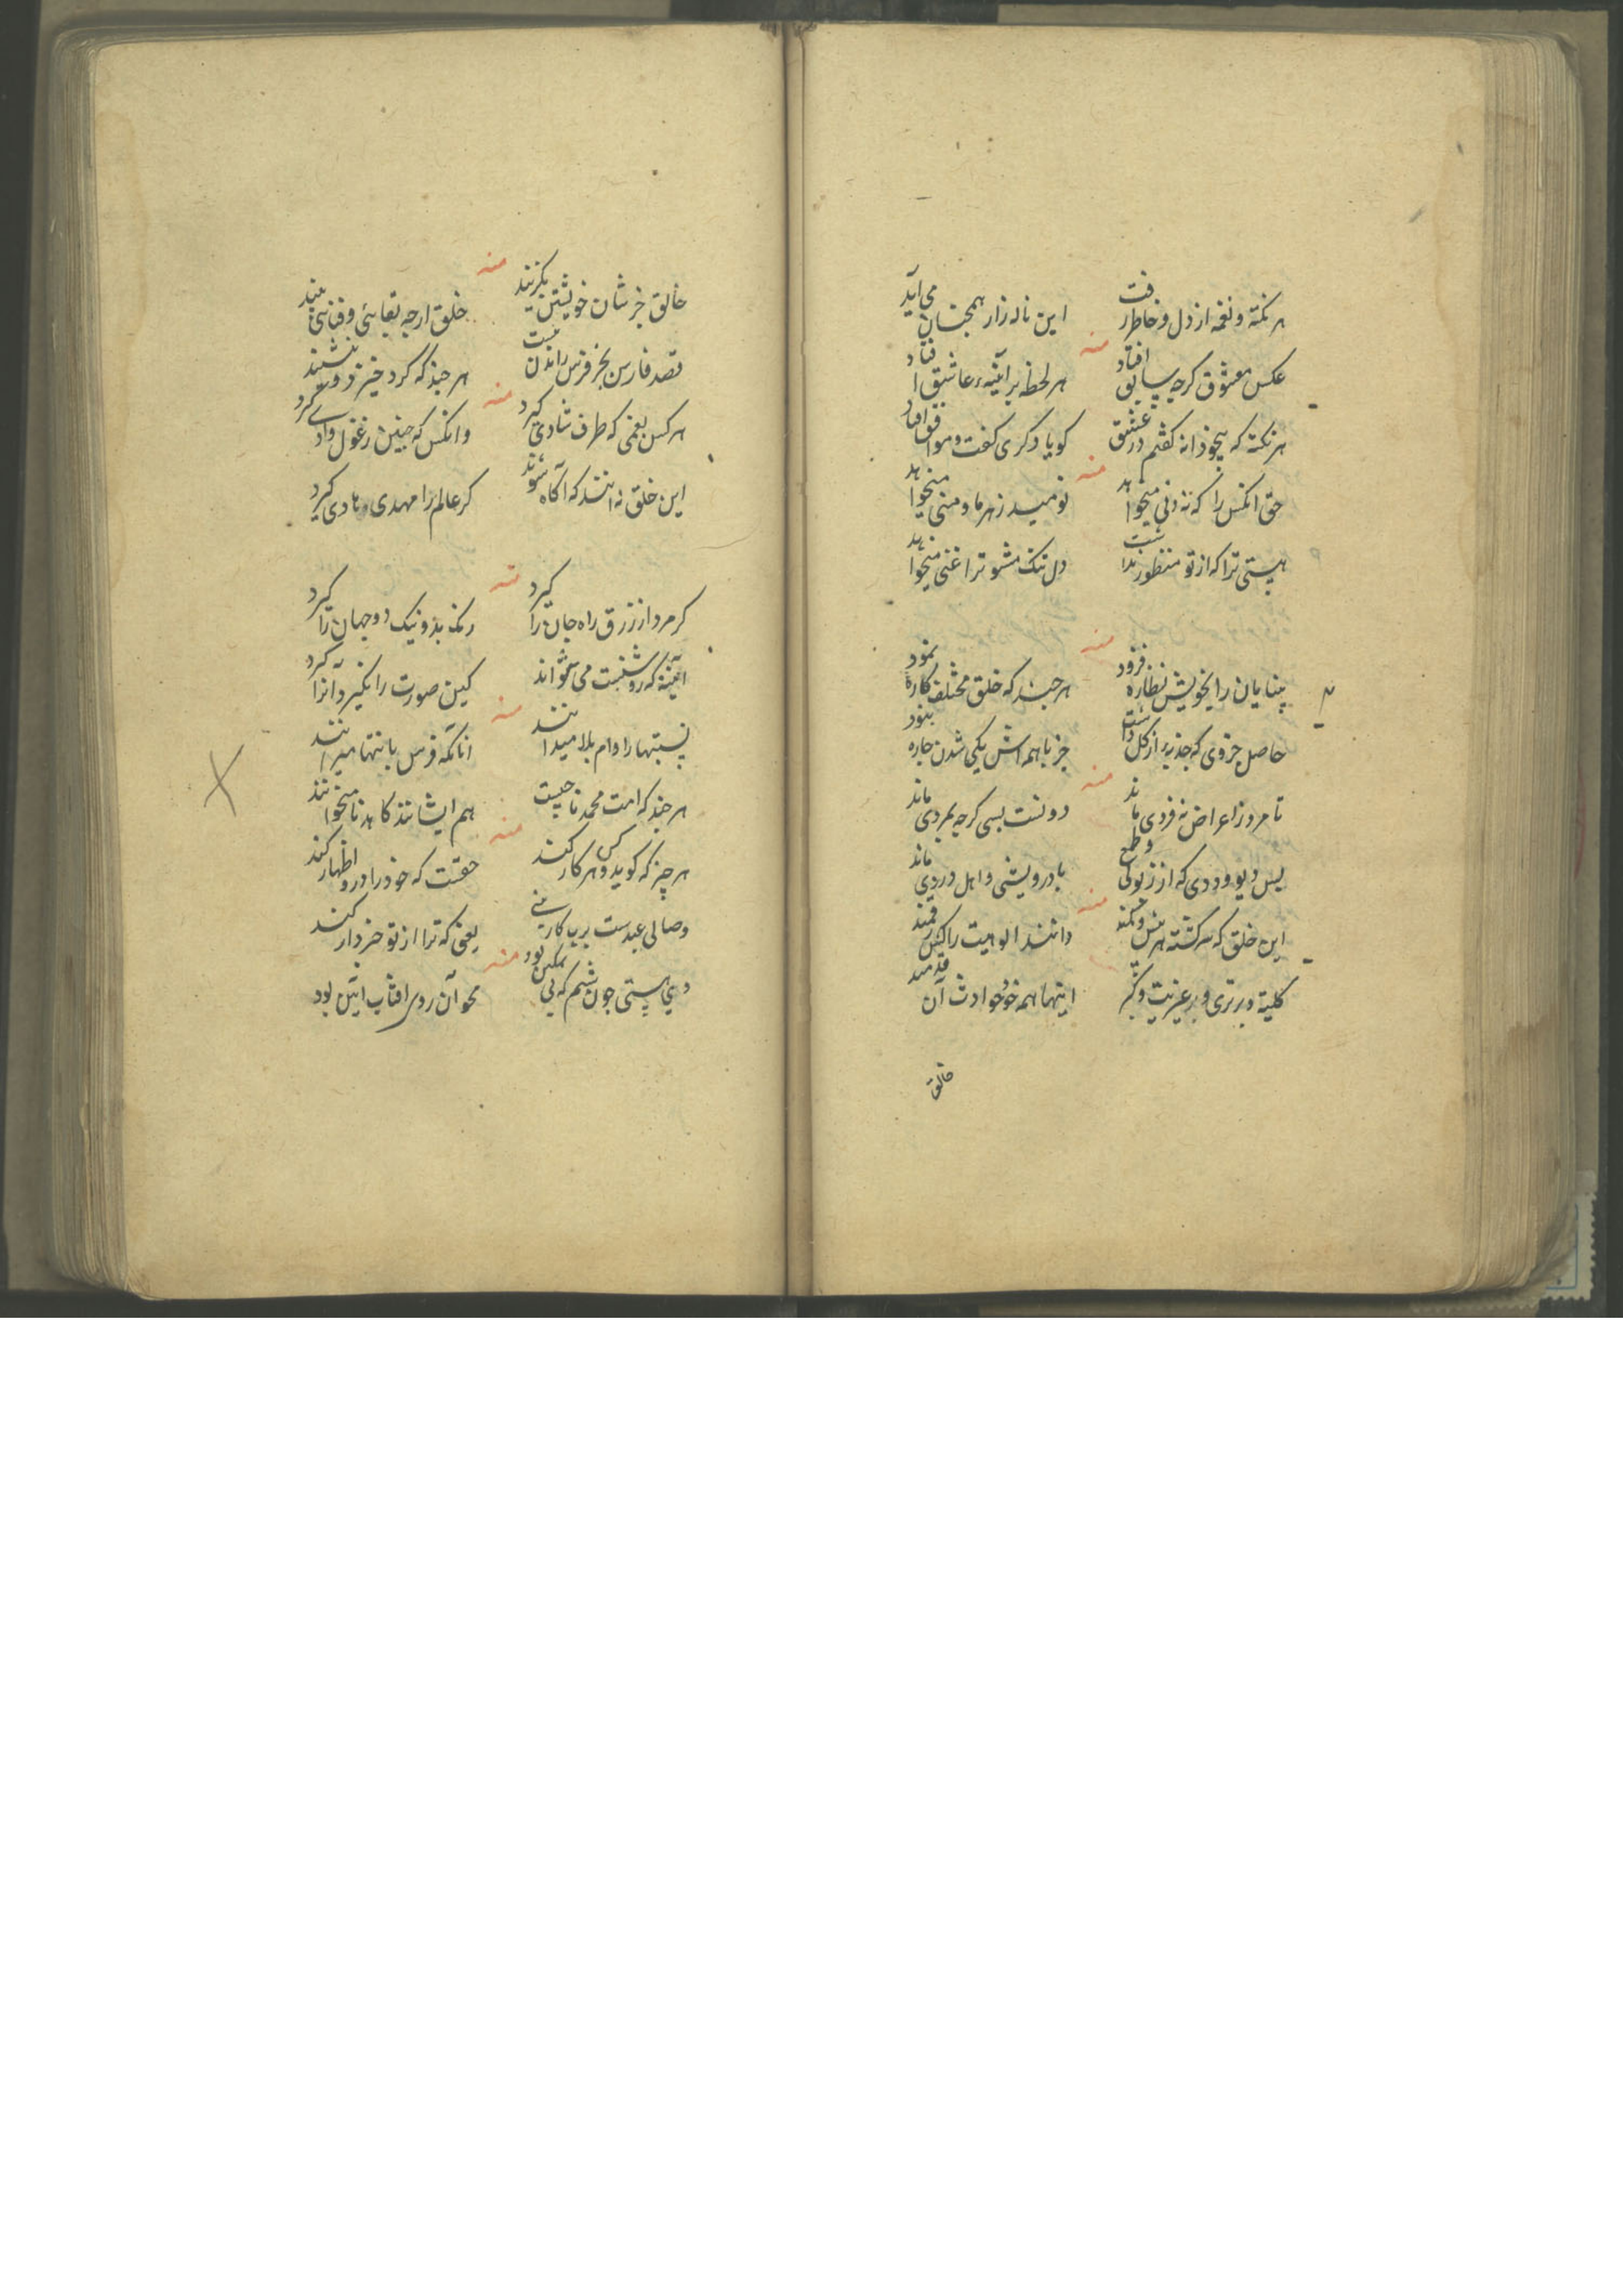 هر نکته و نغمه از دل و خاطر رفت
این ناله زار همچنان می آید
منه
عکس معشوق کرچه سابق افتاد
هر لحظه بر آئینه عاشق افتاد
هر نکته که بیخودانه کفتم در عشق
کویا دکری کفت و موافق افتاد
منه
حق انکس را که نه دنی میخواهد
نومید ز هر ما و منی میخواهد
هستی ترا که از تو منظور نداشت
دل تنک مشو ترا غنی میخواهد
منه
بینایان را بخویش نظاره فزود
هر چند که خلق مختلف کاره نمود
حاصل جزوی که جذبه از کل داشت
جز با همه اش یکی شدن چاره نبود
منه
تا مرد ز اعراض نه فردی ماند
دونست بسی کرچه بمردی ماند
بس دیو و ددی که از زبونی و طمع
با درویشی و اهل دردی ماند
منه
این خلق که سرکشته هر بیش و کمند
دانند الوهیت را
کلیة و برتری و
اینها همه خود حوادث آن قدمند
خالق
خالق جز شان خویشتن نکزیند
خلق ارچه بقائی و فنائی بیند
قصد فارس بجز فرس راندن نیست
هر چند که کرد خیزد و بنشیند
منه
هر کس بغمی که طرف شادی کیرد
وانکس که چنین ز غول وادی کیرد
این خلق نه انند که آکاه شوند
کر عالم را مهدی و هادی کیرد
منه
کر مرد از زرق راه جان را کیرد
رنک بد و نیک دو جهان را کیرد
آئینه که روشنست می نتواند
کین صورت را نکیرد آنرا کیرد
منه
نسبتها را دام بلا میدانند
آنانکه فرس با نتها میرانند
هر چند که امت محمد ناجیست
هم ایشانند کاهدنا میخوانند
منه
هر چیز که کوید و هر کار کند
حقست که خود را در او اظهار کند
وصالی عبدست بر بیکاری
یعنی که ترا از تو خبردار کند
منه
دی هستی چون شبنم که بی تمکین بود
محو آن روی آفتاب آئین بود